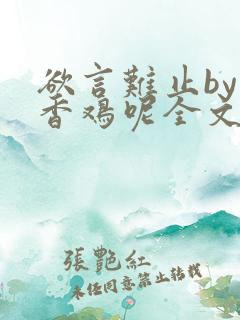 欲言難止by
香鸡呢全文
張艷紅
未任同意禁止转載